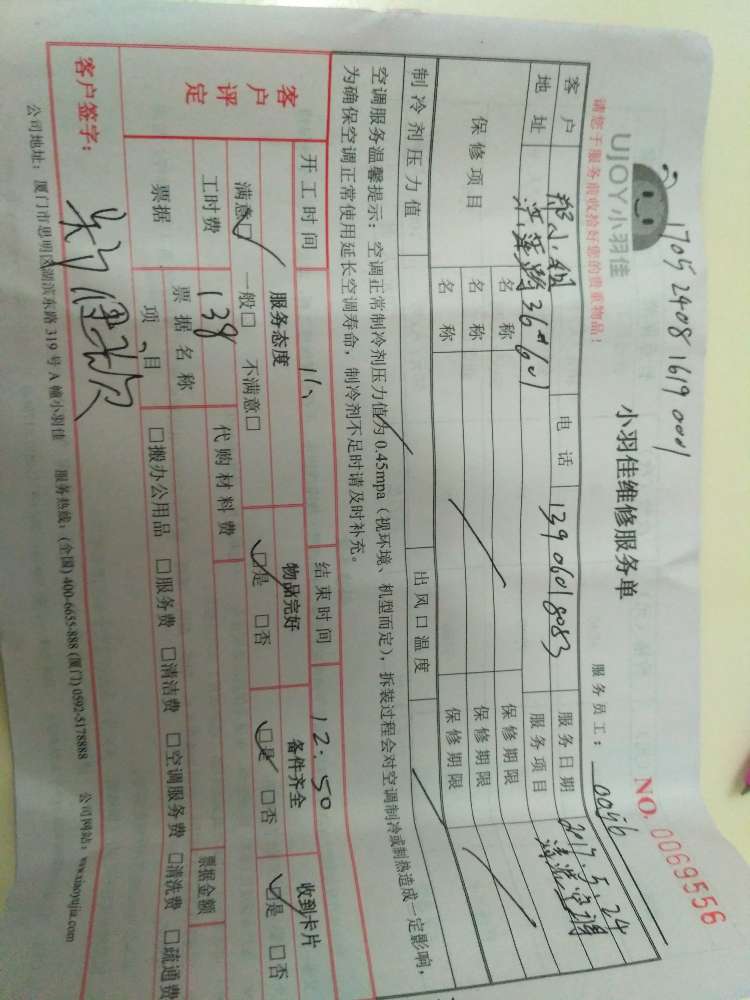 1705 2408 1619 0001
UJOY小羽佳
小羽佳维修服务单
NO. 0069556
请您于服务前收拾好您的贵重物品！
服务员工： 0056
客户 郑小姐 电话 13906018083 服务日期 2017.5.24
地址 萍路36#601 服务项目 清洗空调
保修项目 名称 保修期限
名称 保修期限
名称 保修期限
制冷剂压力值 出风口温度
空调服务温馨提示：空调正常制冷剂压力值为0.45mpa（视环境、机型而定），拆装过程会对空调制冷或制热造成一定影响，
为确保空调正常使用延长空调寿命，制冷剂不足时请及时补充。
开工时间 11: 结束时间 12:50
客户评定
服务态度 物品完好 备件齐全 收到卡片
满意☑ 一般□ 不满意□ ☑是 □否 ☑是 □否 ☑是 □否
工时费 138 代购材料费
票据 票据名称 票据金额
项目 □搬办公用品 □服务费 □清洁费 □空调服务费 □清洗费 □疏通费
客户签字：
公司地址：厦门市思明区湖滨东路319号A幢小羽佳 服务热线：(全国) 400-6655-888 (厦门) 0592-5178888 公司网站：www.xiaoyujia.com